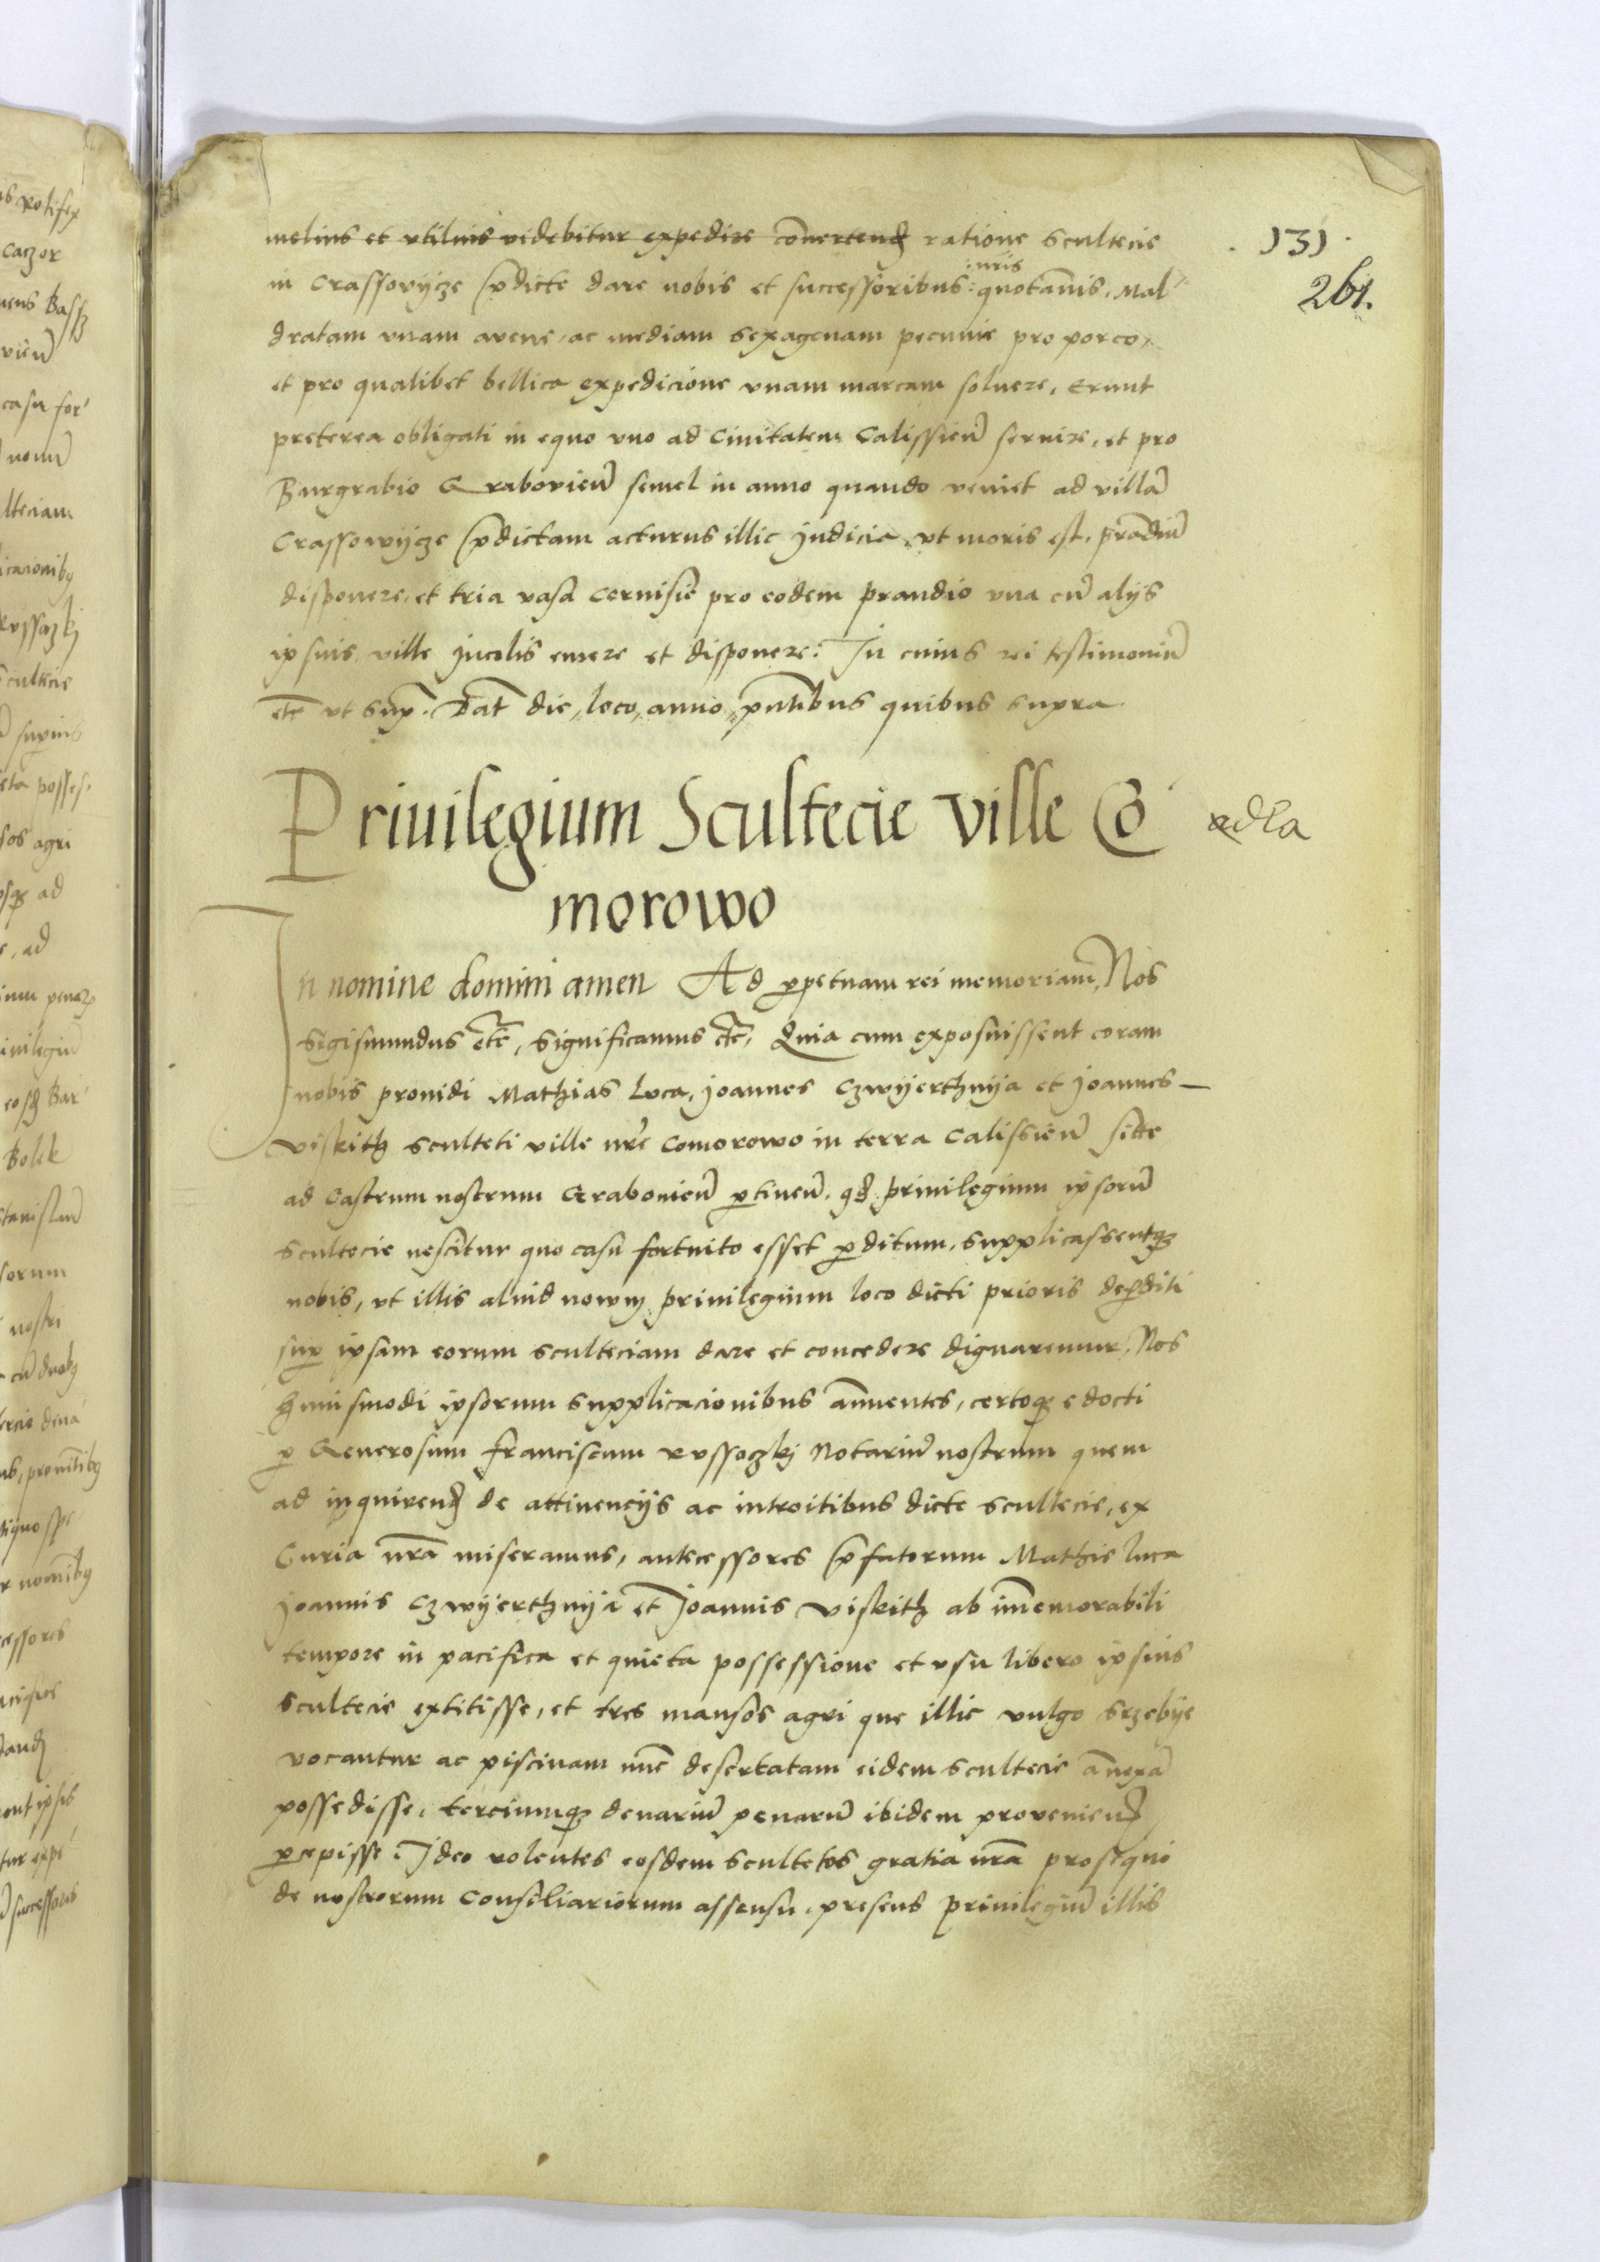 melius et vtilius videbitur expedire cōvertend ratione scultecie
131
in Crassovijcze p̄dicte dare nobis et successoribus :nris: quotānis. Mal-
261.
dratam vnam avene, ac mediam sexagenam pecunie pro porco,
et pro qualibet bellica expedicione vnam marcam soluere, Erunt
preterea obligati in equo vno ad Ciuitatem Calissieñ seruire, et pro
Burgrabio Grabovieñ semel in anno quando veniet ad villā
Crassowijcze p̄dictam acturus illic judicia, vt moris est, prādiū
disponere, et tria vasa ceruisie pro eodem prandio vna cū alijs
ipsius ville jncolis emere et disponere: In cuius rei testimoniū
etc̄ vt sup̄. Dat̄ die, loco, anno, p̄ntibus quibus supra
Priuilegium Scultecie ville Co
morowo
In nomine domini amen Ad p̱petuam rei memoriam, Nos
Sigismundus etc̄, significamus etc̄, Quia cum exposuissent coram
nobis prouidi Mathias Luca, Joannes Czwijerthnija et Joannes
Viskith sculteti ville nr̄e Comorowo in terra Calissieñ sitte
ad Castrum nostrum Grabouieñ p̱tineñ. qd̄ priuilegium ipsorū
scultecie nescitur quo casu fortuito esset p̱ditum, supplicassentq̱
nobis, vt illis aliud nowm priuilegium loco dicti prioris dep̱diti
sup̱ ipsam eorum sculteciam dare et concedere dignaremur, Nos
huiusmodi ipsorum supplicacionibus ānuentes, certoq̱ edocti
p̱ Generosum Franciscum Russoczkj Notariū nostrum quem
ad inquirend̄ de attinencijs ac introitibus dicte scultecie, ex
Curia nr̄a miseramus, antecessores p̄fatorum Mathie Luca
Joannis Czwijerthnija et Joannis Viskith ab im̄emorabili
tempore in pacifica et quieta possessione et vsu libero ipsius
scultecie extitisse, et tres mansos agri que illic vulgo srzebije
vocantur ac piscinam nūc desertatam eidem scultecie ānexā
possedisse, terciumq̱ denariū penarū ibidem proueniend̄
p̱cepisse Ideo volentes eosdem scultetos gratia nr̄a prosequi
de nostrorum Consiliariorum assensu, presens priuilegiū illis